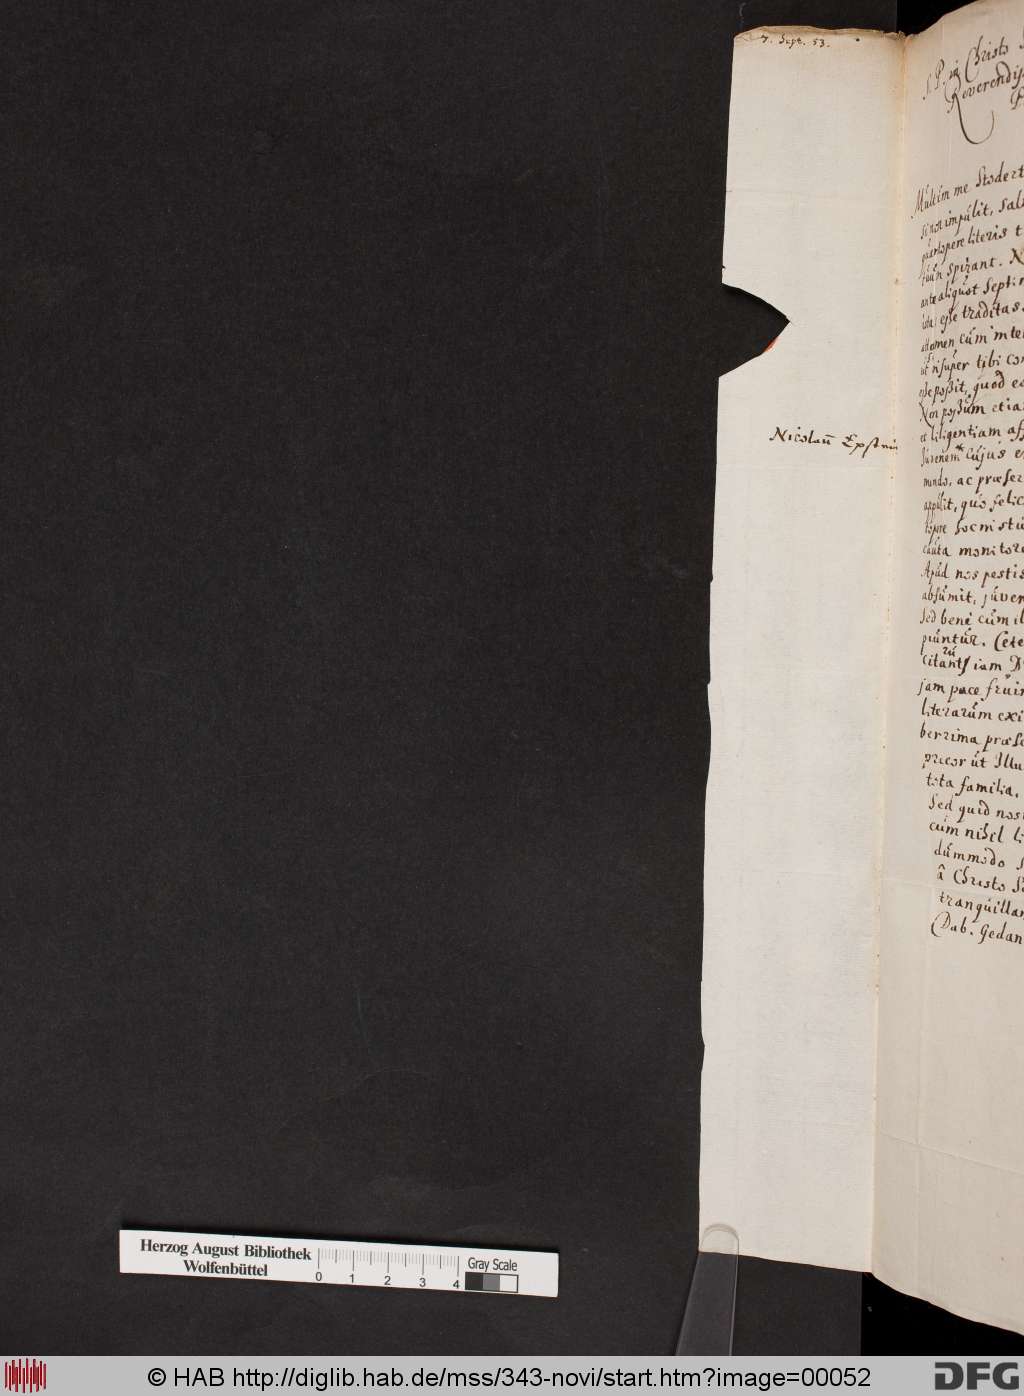 7. Sept. 53.
Nicolaū Epstein
S. P. in Christo
Reverendiss
Multùm me
si non impulit, sal
literis t
tuùm spirant. N
ante aliquot Septim
ista esse traditas
attamen cùm inte
ut insuper tibi con
esse possit, quod e
Non possum etia
et diligentiam aff
Juvenem cujus e
mundo, ac præser
appulit, quò felic
cauta monitor
Apud nos pestis
absumit, juven
sed benè cum il
piuntur. Cete
citant iam D
rū
jam pace fruim
literarum exi
berrima præse
precor ut Illu
tota familia.
Sed quid nost
cùm nihil li
dummodo s
â Christo S
tranquillam
Dab. Gedan
Herzog August Bibliothek
Wolfenbüttel
0 1 2 3 4
Gray Scale
© HAB http://diglib.hab.de/mss/343-novi/start.htm?image=00052
DFG